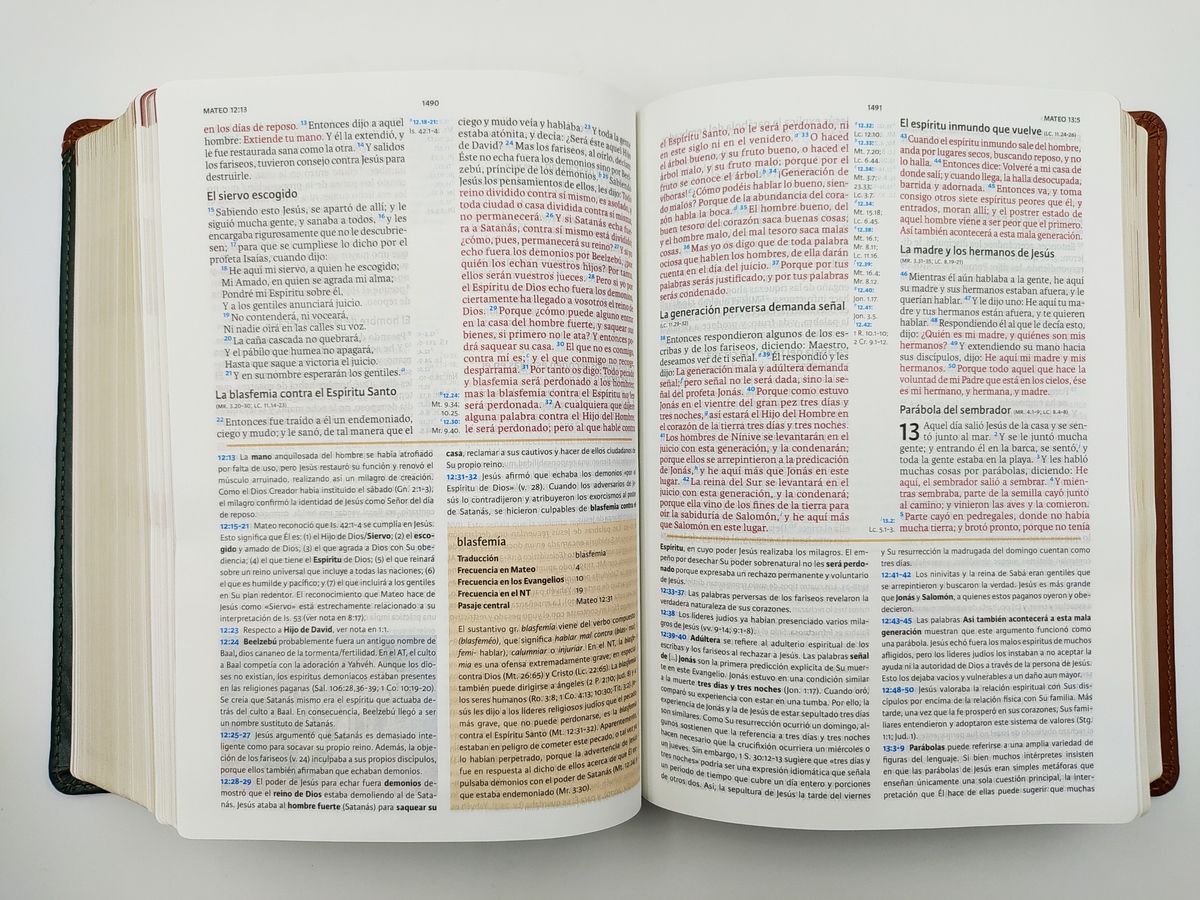 MATEO 12:13
1490
en los días de reposo. 13 Entonces dijo a aquel
hombre: Extiende tu mano. Y él la extendió, y
le fue restaurada sana como la otra. 14 Y salidos
los fariseos, tuvieron consejo contra Jesús para
destruirle.
El siervo escogido
15 Sabiendo esto Jesús, se apartó de allí; y le
siguió mucha gente, y sanaba a todos, 16 y les
encargaba rigurosamente que no le descubrie-
sen; 17 para que se cumpliese lo dicho por el
profeta Isaías, cuando dijo:
18 He aquí mi siervo, a quien he escogido;
Mi Amado, en quien se agrada mi alma;
Pondré mi Espíritu sobre él,
Y a los gentiles anunciará juicio.
19 No contenderá, ni voceará,
Ni nadie oirá en las calles su voz.
20 La caña cascada no quebrará,
Y el pábilo que humea no apagará,
Hasta que saque a victoria el juicio.
21 Y en su nombre esperarán los gentiles.a
La blasfemia contra el Espíritu Santo
(MR. 3.20-30; LC. 11.14-23)
22 Entonces fue traído a él un endemoniado,
ciego y mudo; y le sanó, de tal manera que el
a 12.18-21:
Is. 42.1-4.
b 12.24:
Mt. 9.34;
10.25.
c 12.30:
Mr. 9.40.
ciego y mudo veía y hablaba. 23 Y toda la gente
estaba atónita, y decía: ¿Será éste aquel Hijo
de David? 24 Mas los fariseos, al oírlo, decían:
Éste no echa fuera los demonios sino por Beel-
zebú, príncipe de los demonios.b 25 Sabiendo
Jesús los pensamientos de ellos, les dijo: Todo
reino dividido contra sí mismo, es asolado, y
toda ciudad o casa dividida contra sí misma,
no permanecerá. 26 Y si Satanás echa fue-
ra a Satanás, contra sí mismo está dividido;
¿cómo, pues, permanecerá su reino? 27 Y si yo
echo fuera los demonios por Beelzebú, ¿por
quién los echan vuestros hijos? Por tanto,
ellos serán vuestros jueces. 28 Pero si yo por
el Espíritu de Dios echo fuera los demonios,
ciertamente ha llegado a vosotros el reino de
Dios. 29 Porque ¿cómo puede alguno entrar
en la casa del hombre fuerte, y saquear sus
bienes, si primero no le ata? Y entonces po-
drá saquear su casa. 30 El que no es conmigo,
contra mí es;c y el que conmigo no recoge,
desparrama. 31 Por tanto os digo: Todo pecado
y blasfemia será perdonado a los hombres;
mas la blasfemia contra el Espíritu no les
será perdonada. 32 A cualquiera que dijere
alguna palabra contra el Hijo del Hombre,
le será perdonado; pero al que hable contra
12:13 La mano anquilosada del hombre se había atrofiado
por falta de uso, pero Jesús restauró su función y renovó el
músculo arruinado, realizando así un milagro de creación.
Como el Dios Creador había instituido el sábado (Gn. 2:1-3);
el milagro confirmó la identidad de Jesús como Señor del día
de reposo.
12:15-21 Mateo reconoció que Is. 42:1-4 se cumplía en Jesús:
Esto significa que Él es: (1) el Hijo de Dios/Siervo; (2) el esco-
gido y amado de Dios, (3) el que agrada a Dios con Su obe-
diencia; (4) el que tiene el Espíritu de Dios; (5) el que reinará
sobre un reino universal que incluye a todas las naciones; (6)
el que es humilde y pacífico; y (7) el que incluirá a los gentiles
en Su plan redentor. El reconocimiento que Mateo hace de
Jesús como «Siervo» está estrechamente relacionado a su
interpretación de Is. 53 (ver nota en 8:17).
12:23 Respecto a Hijo de David, ver nota en 1:1.
12:24 Beelzebú probablemente fuera un antiguo nombre de
Baal, dios cananeo de la tormenta/fertilidad. En el AT, el culto
a Baal competía con la adoración a Yahvéh. Aunque los dio-
ses no existían, los espíritus demoníacos estaban presentes
en las religiones paganas (Sal. 106:28,36-39; 1 Co. 10:19-20).
Se creía que Satanás mismo era el espíritu que actuaba de-
trás del culto a Baal. En consecuencia, Beelzebú llegó a ser
un nombre sustituto de Satanás.
12:25-27 Jesús argumentó que Satanás es demasiado inte-
ligente como para socavar su propio reino. Además, la obje-
ción de los fariseos (v. 24) inculpaba a sus propios discípulos,
porque ellos también afirmaban que echaban demonios.
12:28-29 El poder de Jesús para echar fuera demonios de-
mostró que el reino de Dios estaba demoliendo al de Sata-
nás. Jesús ataba al hombre fuerte (Satanás) para saquear su
casa, reclamar a sus cautivos y hacer de ellos ciudadanos de
Su propio reino.
12:31-32 Jesús afirmó que echaba los demonios «por el
Espíritu de Dios» (v. 28). Cuando los adversarios de Je-
sús lo contradijeron y atribuyeron los exorcismos al poder
de Satanás, se hicieron culpables de blasfemia contra el
blasfemia
Traducción blasfemia
Frecuencia en Mateo 4
Frecuencia en los Evangelios 10
Frecuencia en el NT 19
Pasaje central Mateo 12:31
El sustantivo gr. blasfemia viene del verbo compuesto
(blasfeméo), que significa hablar mal contra (blas- mal,
femi- hablar), calumniar o injuriar. En el NT, la blasfe-
mia es una ofensa extremadamente grave; en especial
contra Dios (Mt. 26:65) y Cristo (Lc. 22:65). La blasfemia
también puede dirigirse a ángeles (2 P. 2:10; Jud. 8) y a
los seres humanos (Ro. 3:8; 1 Co. 4:13; 10:30; Tit. 3:2). Je-
sús les dijo a los líderes religiosos judíos que el pecado
más grave, que no puede perdonarse, es la blasfemia
contra el Espíritu Santo (Mt. 12:31-32). Aparentemente,
estaban en peligro de cometer este pecado, o tal vez ya
lo habían perpetrado, porque la advertencia de Jesús
fue en respuesta al dicho de ellos acerca de que Él ex-
pulsaba demonios con el poder de Satanás (Mt. 12:24) y
que estaba endemoniado (Mr. 3:30).
1491
MATEO 13:5
el Espíritu Santo, no le será perdonado, ni
en este siglo ni en el venidero.d 33 O haced
el árbol bueno, y su fruto bueno, o haced el
árbol malo, y su fruto malo; porque por el
fruto se conoce el árbol.e 34 ¡Generación de
víboras! ¿Cómo podéis hablar lo bueno, sien-
do malos? Porque de la abundancia del cora-
zón habla la boca. 35 El hombre bueno, del
buen tesoro del corazón saca buenas cosas;
y el hombre malo, del mal tesoro saca malas
cosas. 36 Mas yo os digo que de toda palabra
ociosa que hablen los hombres, de ella darán
cuenta en el día del juicio. 37 Porque por tus
palabras serás justificado, y por tus palabras
serás condenado.
La generación perversa demanda señal
(LC. 11.29-32)
38 Entonces respondieron algunos de los es-
cribas y de los fariseos, diciendo: Maestro,
deseamos ver de ti señal. 39 Él respondió y les
dijo: La generación mala y adúltera demanda
señal; pero señal no le será dada, sino la se-
ñal del profeta Jonás. 40 Porque como estuvo
Jonás en el vientre del gran pez tres días y
tres noches, así estará el Hijo del Hombre en
el corazón de la tierra tres días y tres noches.
41 Los hombres de Nínive se levantarán en el
juicio con esta generación, y la condenarán;
porque ellos se arrepintieron a la predicación
de Jonás, y he aquí más que Jonás en este
lugar. 42 La reina del Sur se levantará en el
juicio con esta generación, y la condenará;
porque ella vino de los fines de la tierra para
oír la sabiduría de Salomón, y he aquí más
que Salomón en este lugar.
12.32:
Lc. 12.10.
12.33:
Mt. 7.20;
Lc. 6.44.
12.34:
Mt. 3.7;
23.33;
Lc. 3.7.
12.34:
Mt. 15.18;
Lc. 6.45.
12.38:
Mt. 16.1;
Mr. 8.11;
Lc. 11.16.
12.39:
Mt. 16.4;
Mr. 8.12.
12.40:
Jon. 1.17.
12.41:
Jon. 3.5.
12.42:
1 R. 10.1-10;
2 Cr. 9.1-12.
13.2:
Lc. 5.1-3.
El espíritu inmundo que vuelve (LC. 11.24-26)
43 Cuando el espíritu inmundo sale del hombre,
anda por lugares secos, buscando reposo, y no
lo halla. 44 Entonces dice: Volveré a mi casa de
donde salí; y cuando llega, la halla desocupada,
barrida y adornada. 45 Entonces va, y toma
consigo otros siete espíritus peores que él, y
entrados, moran allí; y el postrer estado de
aquel hombre viene a ser peor que el primero.
Así también acontecerá a esta mala generación.
La madre y los hermanos de Jesús
(MR. 3.31-35; LC. 8.19-21)
46 Mientras él aún hablaba a la gente, he aquí
su madre y sus hermanos estaban afuera, y le
querían hablar. 47 Y le dijo uno: He aquí tu ma-
dre y tus hermanos están afuera, y te quieren
hablar. 48 Respondiendo él al que le decía esto,
dijo: ¿Quién es mi madre, y quiénes son mis
hermanos? 49 Y extendiendo su mano hacia
sus discípulos, dijo: He aquí mi madre y mis
hermanos. 50 Porque todo aquel que hace la
voluntad de mi Padre que está en los cielos, ése
es mi hermano, y hermana, y madre.
Parábola del sembrador (MR. 4.1-9; LC. 8.4-8)
13 Aquel día salió Jesús de la casa y se sen-
tó junto al mar. 2 Y se le juntó mucha
gente; y entrando él en la barca, se sentó, y
toda la gente estaba en la playa. 3 Y les habló
muchas cosas por parábolas, diciendo: He
aquí, el sembrador salió a sembrar. 4 Y mien-
tras sembraba, parte de la semilla cayó junto
al camino; y vinieron las aves y la comieron.
5 Parte cayó en pedregales, donde no había
mucha tierra; y brotó pronto, porque no tenía
Espíritu, en cuyo poder Jesús realizaba los milagros. El em-
peño por desechar Su poder sobrenatural no les será perdo-
nado porque expresaba un rechazo permanente y voluntario
de Jesús.
12:33-37 Las palabras perversas de los fariseos revelaron la
verdadera naturaleza de sus corazones.
12:38 Los líderes judíos ya habían presenciado varios mila-
gros de Jesús (vv. 9-14; 9:1-8).
12:39-40 Adúltera se refiere al adulterio espiritual de los
escribas y los fariseos al rechazar a Jesús. Las palabras señal
de [...] Jonás son la primera predicción explícita de Su muer-
te en este Evangelio. Jonás estuvo en una condición similar
a la muerte tres días y tres noches (Jon. 1:17). Cuando oró,
comparó su experiencia con estar en una tumba. Por ello; la
experiencia de Jonás y la de Jesús de estar sepultado tres días
son similares. Como Su resurrección ocurrió un domingo, al-
gunos sostienen que la referencia a tres días y tres noches
hacen necesario que la crucifixión ocurriera un miércoles o
un jueves. Sin embargo, 1 S. 30:12-13 sugiere que «tres días y
tres noches» podría ser una expresión idiomática que señala
un período de tiempo que cubre un día entero y porciones
de otros dos. Así, la sepultura de Jesús la tarde del viernes
y Su resurrección la madrugada del domingo cuentan como
tres días.
12:41-42 Los ninivitas y la reina de Sabá eran gentiles que
se arrepintieron y buscaron la verdad. Jesús es más grande
que Jonás y Salomón, a quienes estos paganos oyeron y obe-
decieron.
12:43-45 Las palabras Así también acontecerá a esta mala
generación muestran que este argumento funcionó como
una parábola. Jesús echó fuera los malos espíritus y muchos
afligidos, pero los líderes judíos los instaban a no aceptar la
ayuda ni la autoridad de Dios a través de la persona de Jesús.
Esto los dejaba vacíos y vulnerables a un daño aun mayor.
12:48-50 Jesús valoraba la relación espiritual con Sus dis-
cípulos por encima de la relación física con Su familia. Más
tarde, una vez que la fe prosperó en sus corazones, Sus fami-
liares entendieron y adoptaron este sistema de valores (Stg.
1:1; Jud. 1).
13:3-9 Parábolas puede referirse a una amplia variedad de
figuras del lenguaje. Si bien muchos intérpretes insisten
en que las parábolas de Jesús eran simples metáforas que
enseñan únicamente una sola cuestión principal, la inter-
pretación que Él hace de ellas puede sugerir que muchas